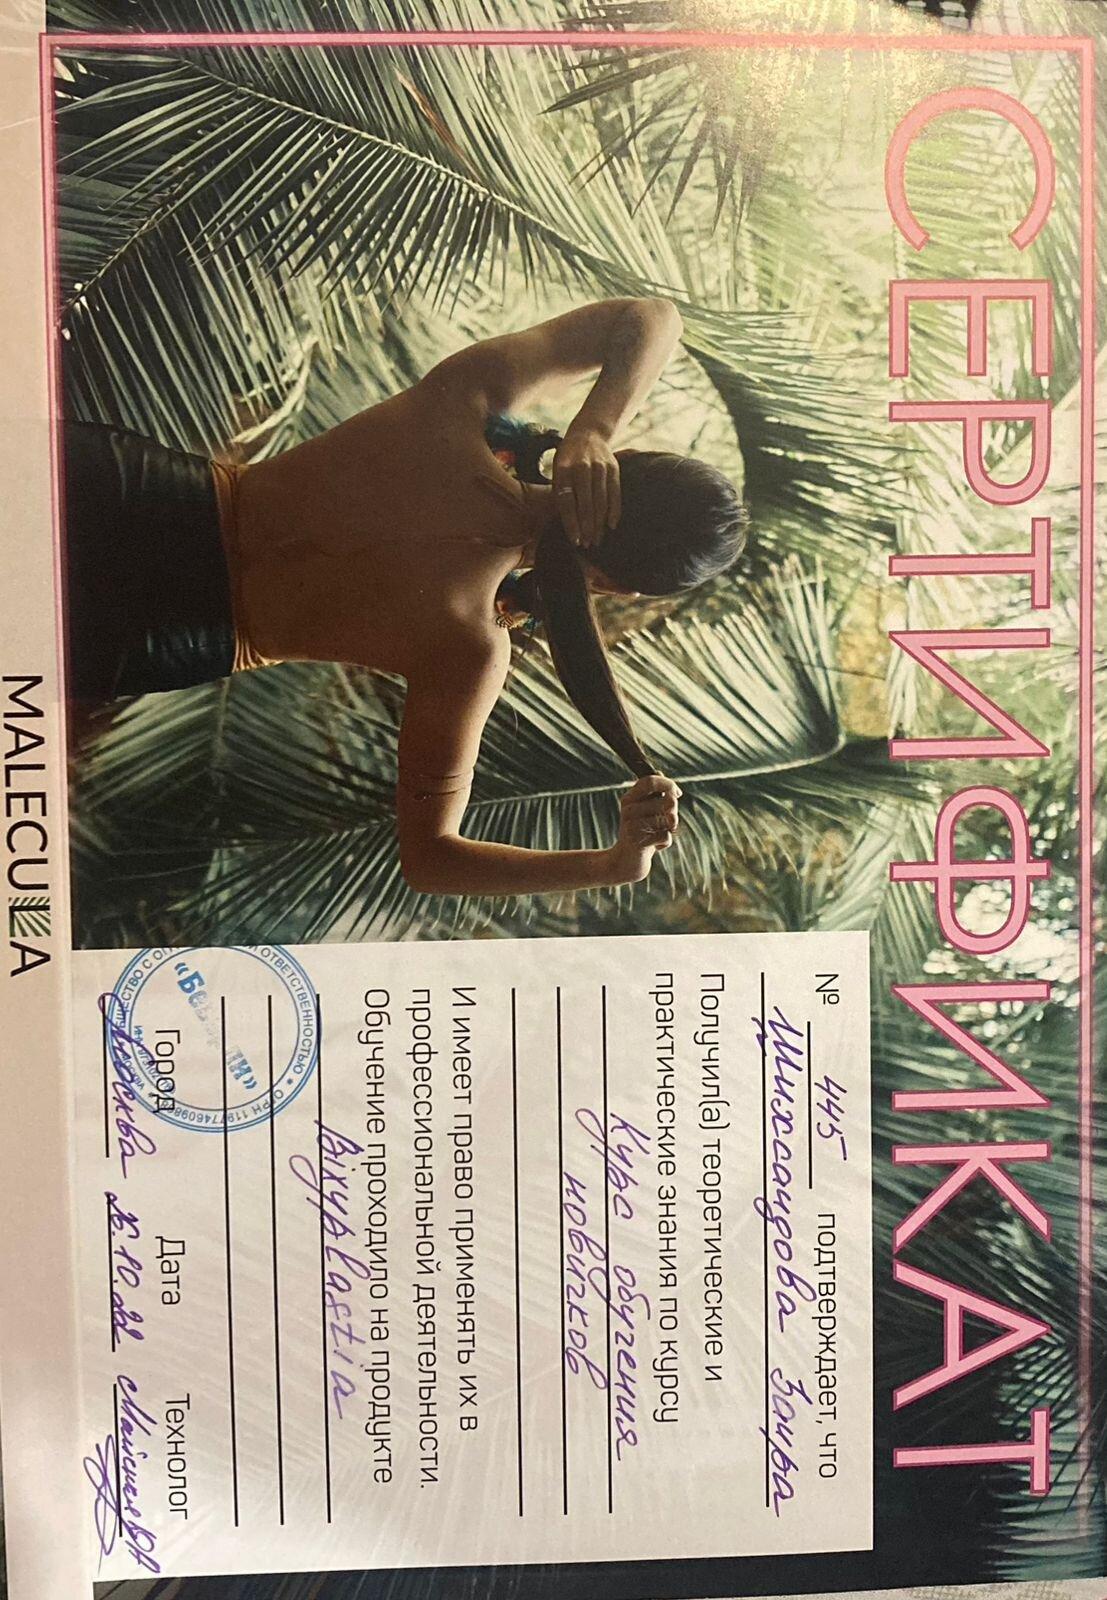 СЕРТИФИКАТ
№ 445 подтверждает, что
Шихсаидова Заира
Получил(а) теоретические и
практические знания по курсу
Курс обучения
новичков
И имеет право применять их в
профессиональной деятельности.
Обучение проходило на продукте
Bixyplastia
Город Дата Технолог
Москва 26.10.22
ОТВЕТСТВЕННОСТЬЮ
ОГРН
MALECULA